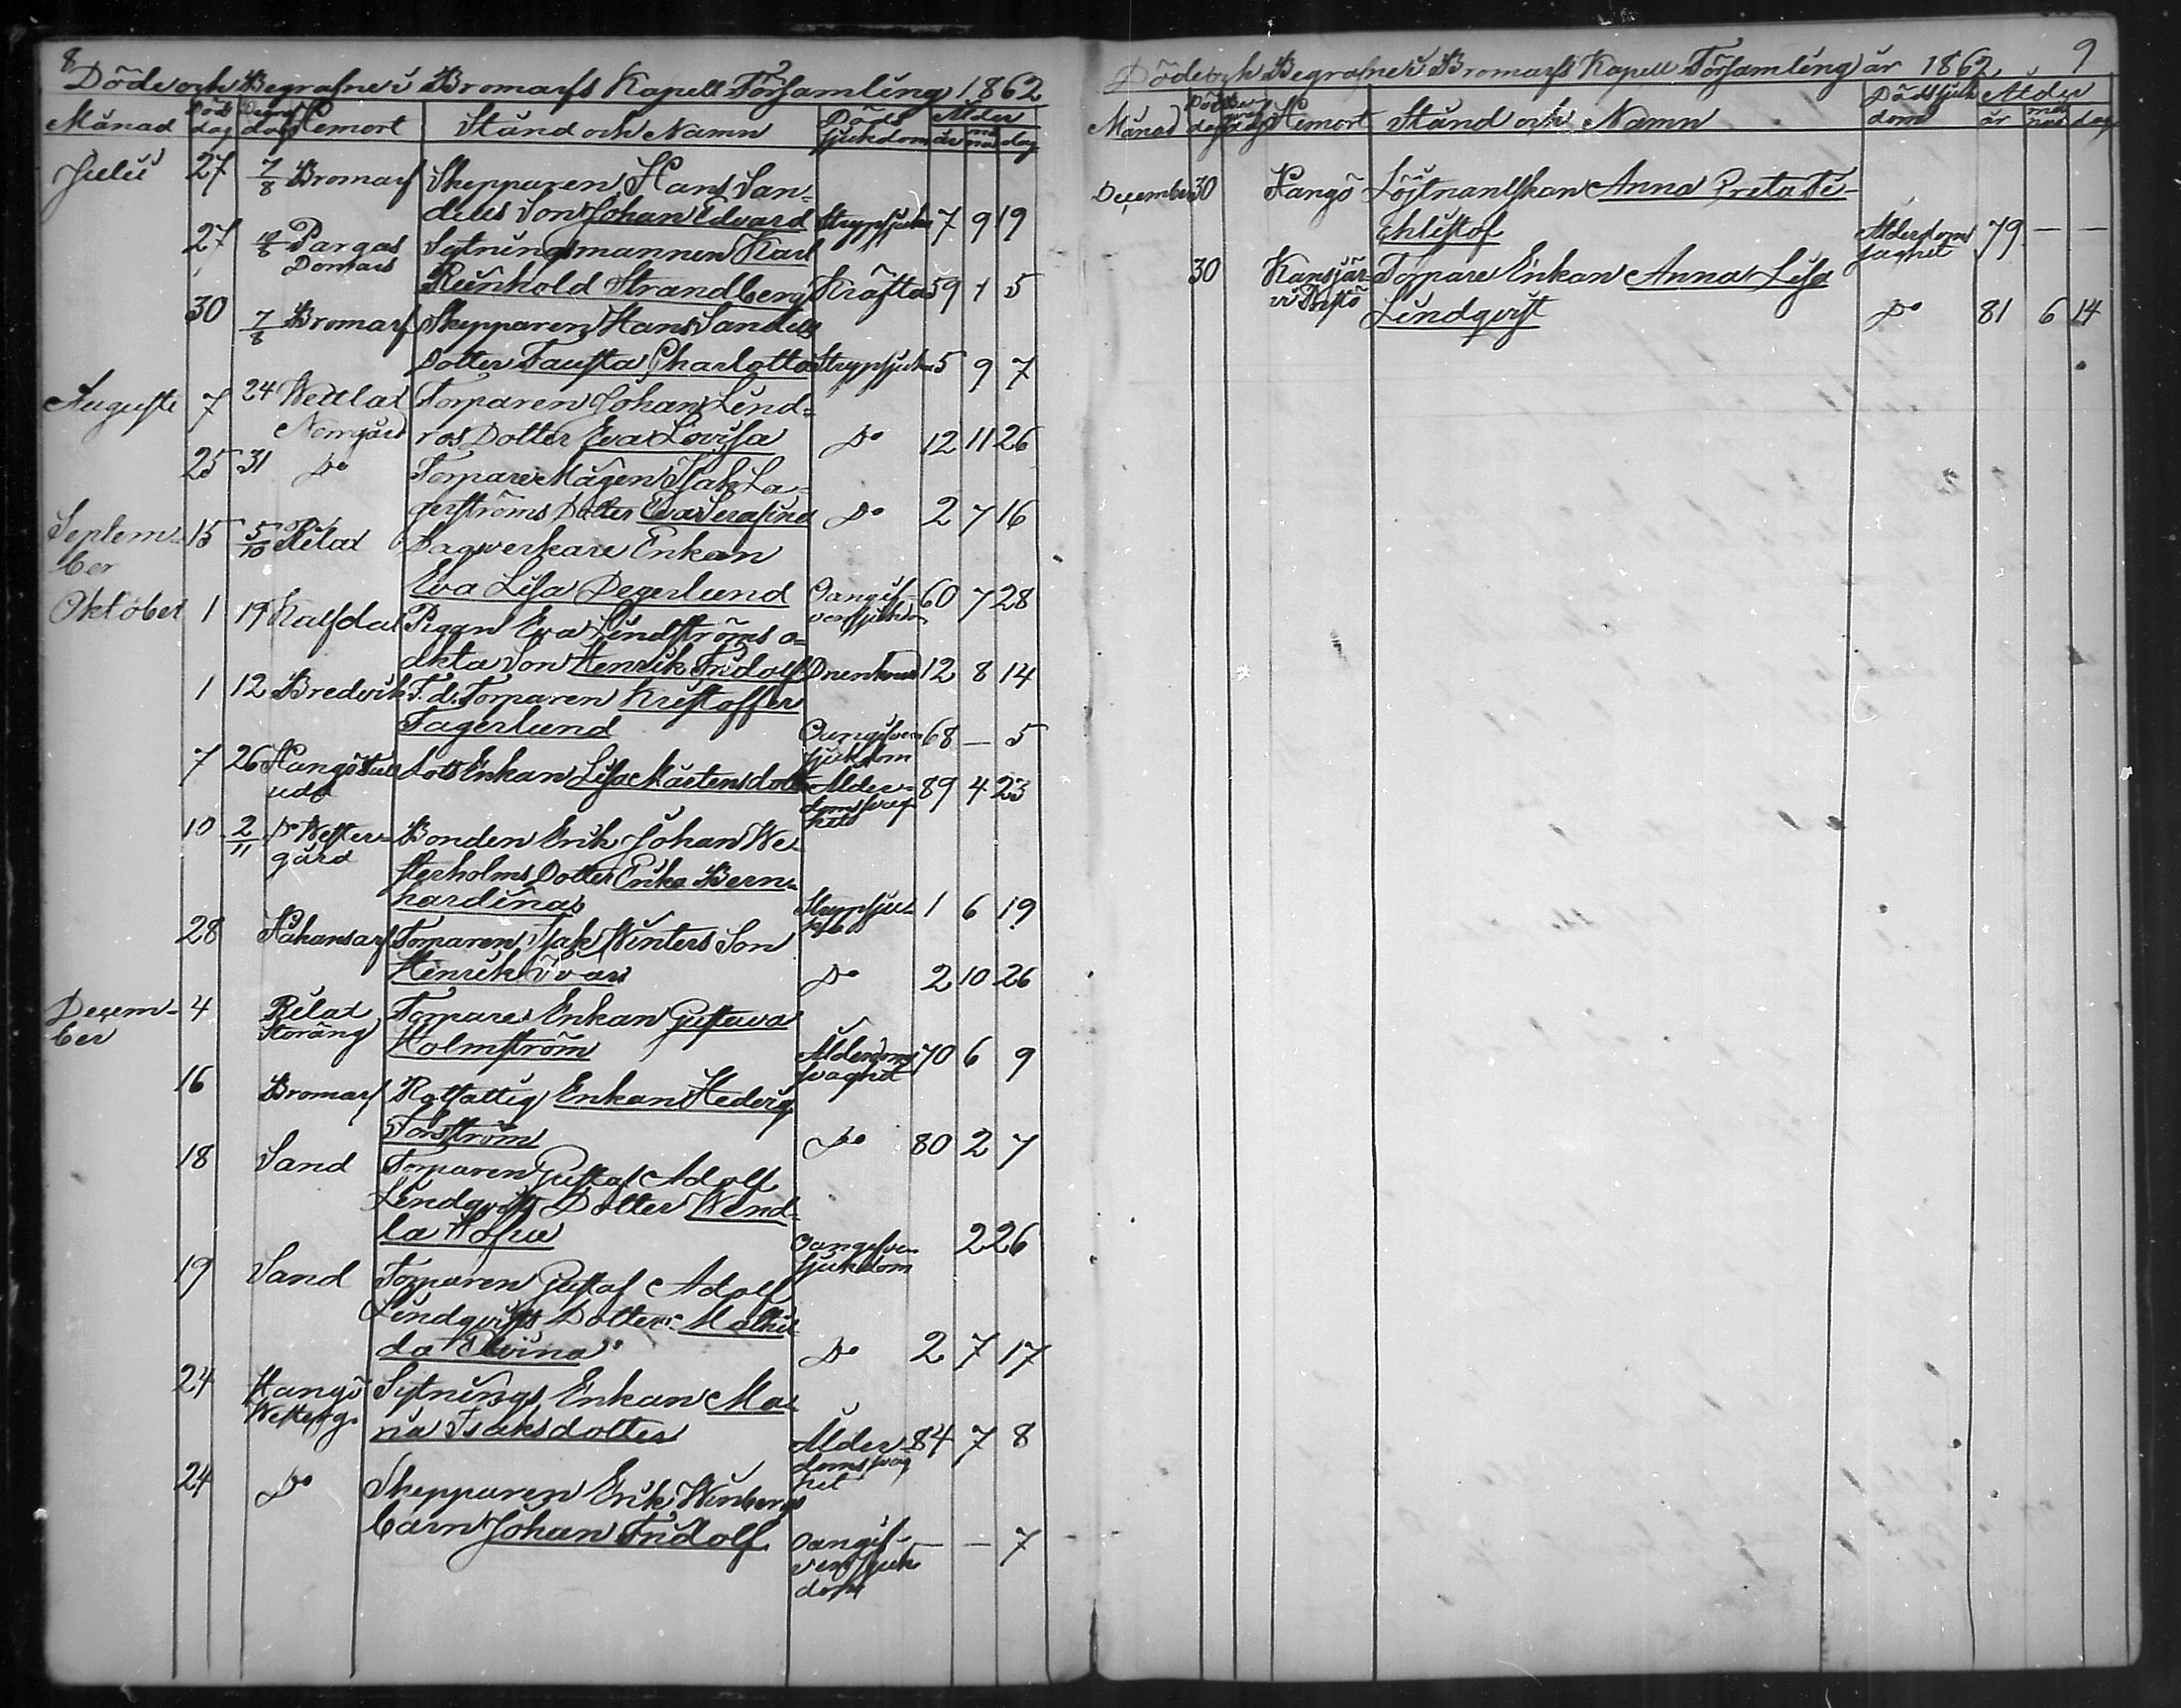 8
Döde och Begrafne i Bromarfs Kapell Församling 1862
Månad Död dag Begr dag Hemort Stånd och Namn Döds sjukdom Ålder år må nad dag
Julii 27 7/8 Bromarf Skepparen Hans San-
dells Son Johan Edvard Strypsjuka 7 9 19
27 Pargas Sytningsmannen Karl
Domars Reinhold Strandberg Kräfta 59 1 5
30 7/8 Bromarf Skepparen Hans Sandells
Dotter Fausta Charlotta Strypsjuka 5 9 7
Augusti 7 24 Wättlax Torparen Johan Lind-
Norrgård ros Dotter Eva Lovisa Do 12 11 26
25 31 Do Torpare Mågen Isak La-
gerströms Dotter Eva Serafina Do 2 7 16
Septem- 15 5/10 Rilax Dagwerkare Enkan
ber Eva Lisa Degerlund Oangif- 60 7 28
ven sjukdom
Oktober 1 19 Kalfdal Pigan Eva Lindströms o-
äkta Son Henrik Fridolf Drunknad 12 8 14
1 12 Bredvik F.d. Torparen Kristoffer
Fagerlund Oangifven 68 — 5
sjukdom
7 26 Hangö Lots Enkan Lisa Mårtensdotter Ålder- 89 4 23
udd domsswag
het
10 2/11 Do Wester- Bonden Erik Johan We-
gård sterholms Dotter Erika Bern-
hardina Strypsju- 1 6 19
ka
28 Håkansarf Torparen Isak Winters Son
Henrik Ivar Do 2 10 26
Decem- 4 Rilax Torpare Enkan Gustava
ber Storäng Holmström Ålderdoms 70 6 9
svaghet
16 Bromarf Rotfattig Enkan Hedvig
Forsström Do 80 2 7
18 Sand Torparen Gustaf Adolf
Lindqvists Dotter Wend-
la Oangifven 2 26
sjukdom
19 Sand Torparen Gustaf Adolf
Lindqvists Dotter Mathil-
da Elvina Do 2 7 17
24 Hangö Sytnings Enkan Ma-
Westerg. ria Isaksdotter Ålder- 84 7 8
domsswag
het
24 Do Skepparen Erik Winbergs
barn Johan Fridolf Oangif- — — 7
ven sjuk-
dom
Döde och Begrafne i Bromarfs Kapell Församling år 1862 9
Månad Död dag Be graf dag Hemort Stånd och Namn Dödssjuk dom Ålder år må nad dag
December 30 Hangö Löjtnantskan Anna Greta
Ålderdom 79 — —
svaghet
30 Kansjär- Torpare Enkan Anna Lisa
Lindqvist Do 81 6 14